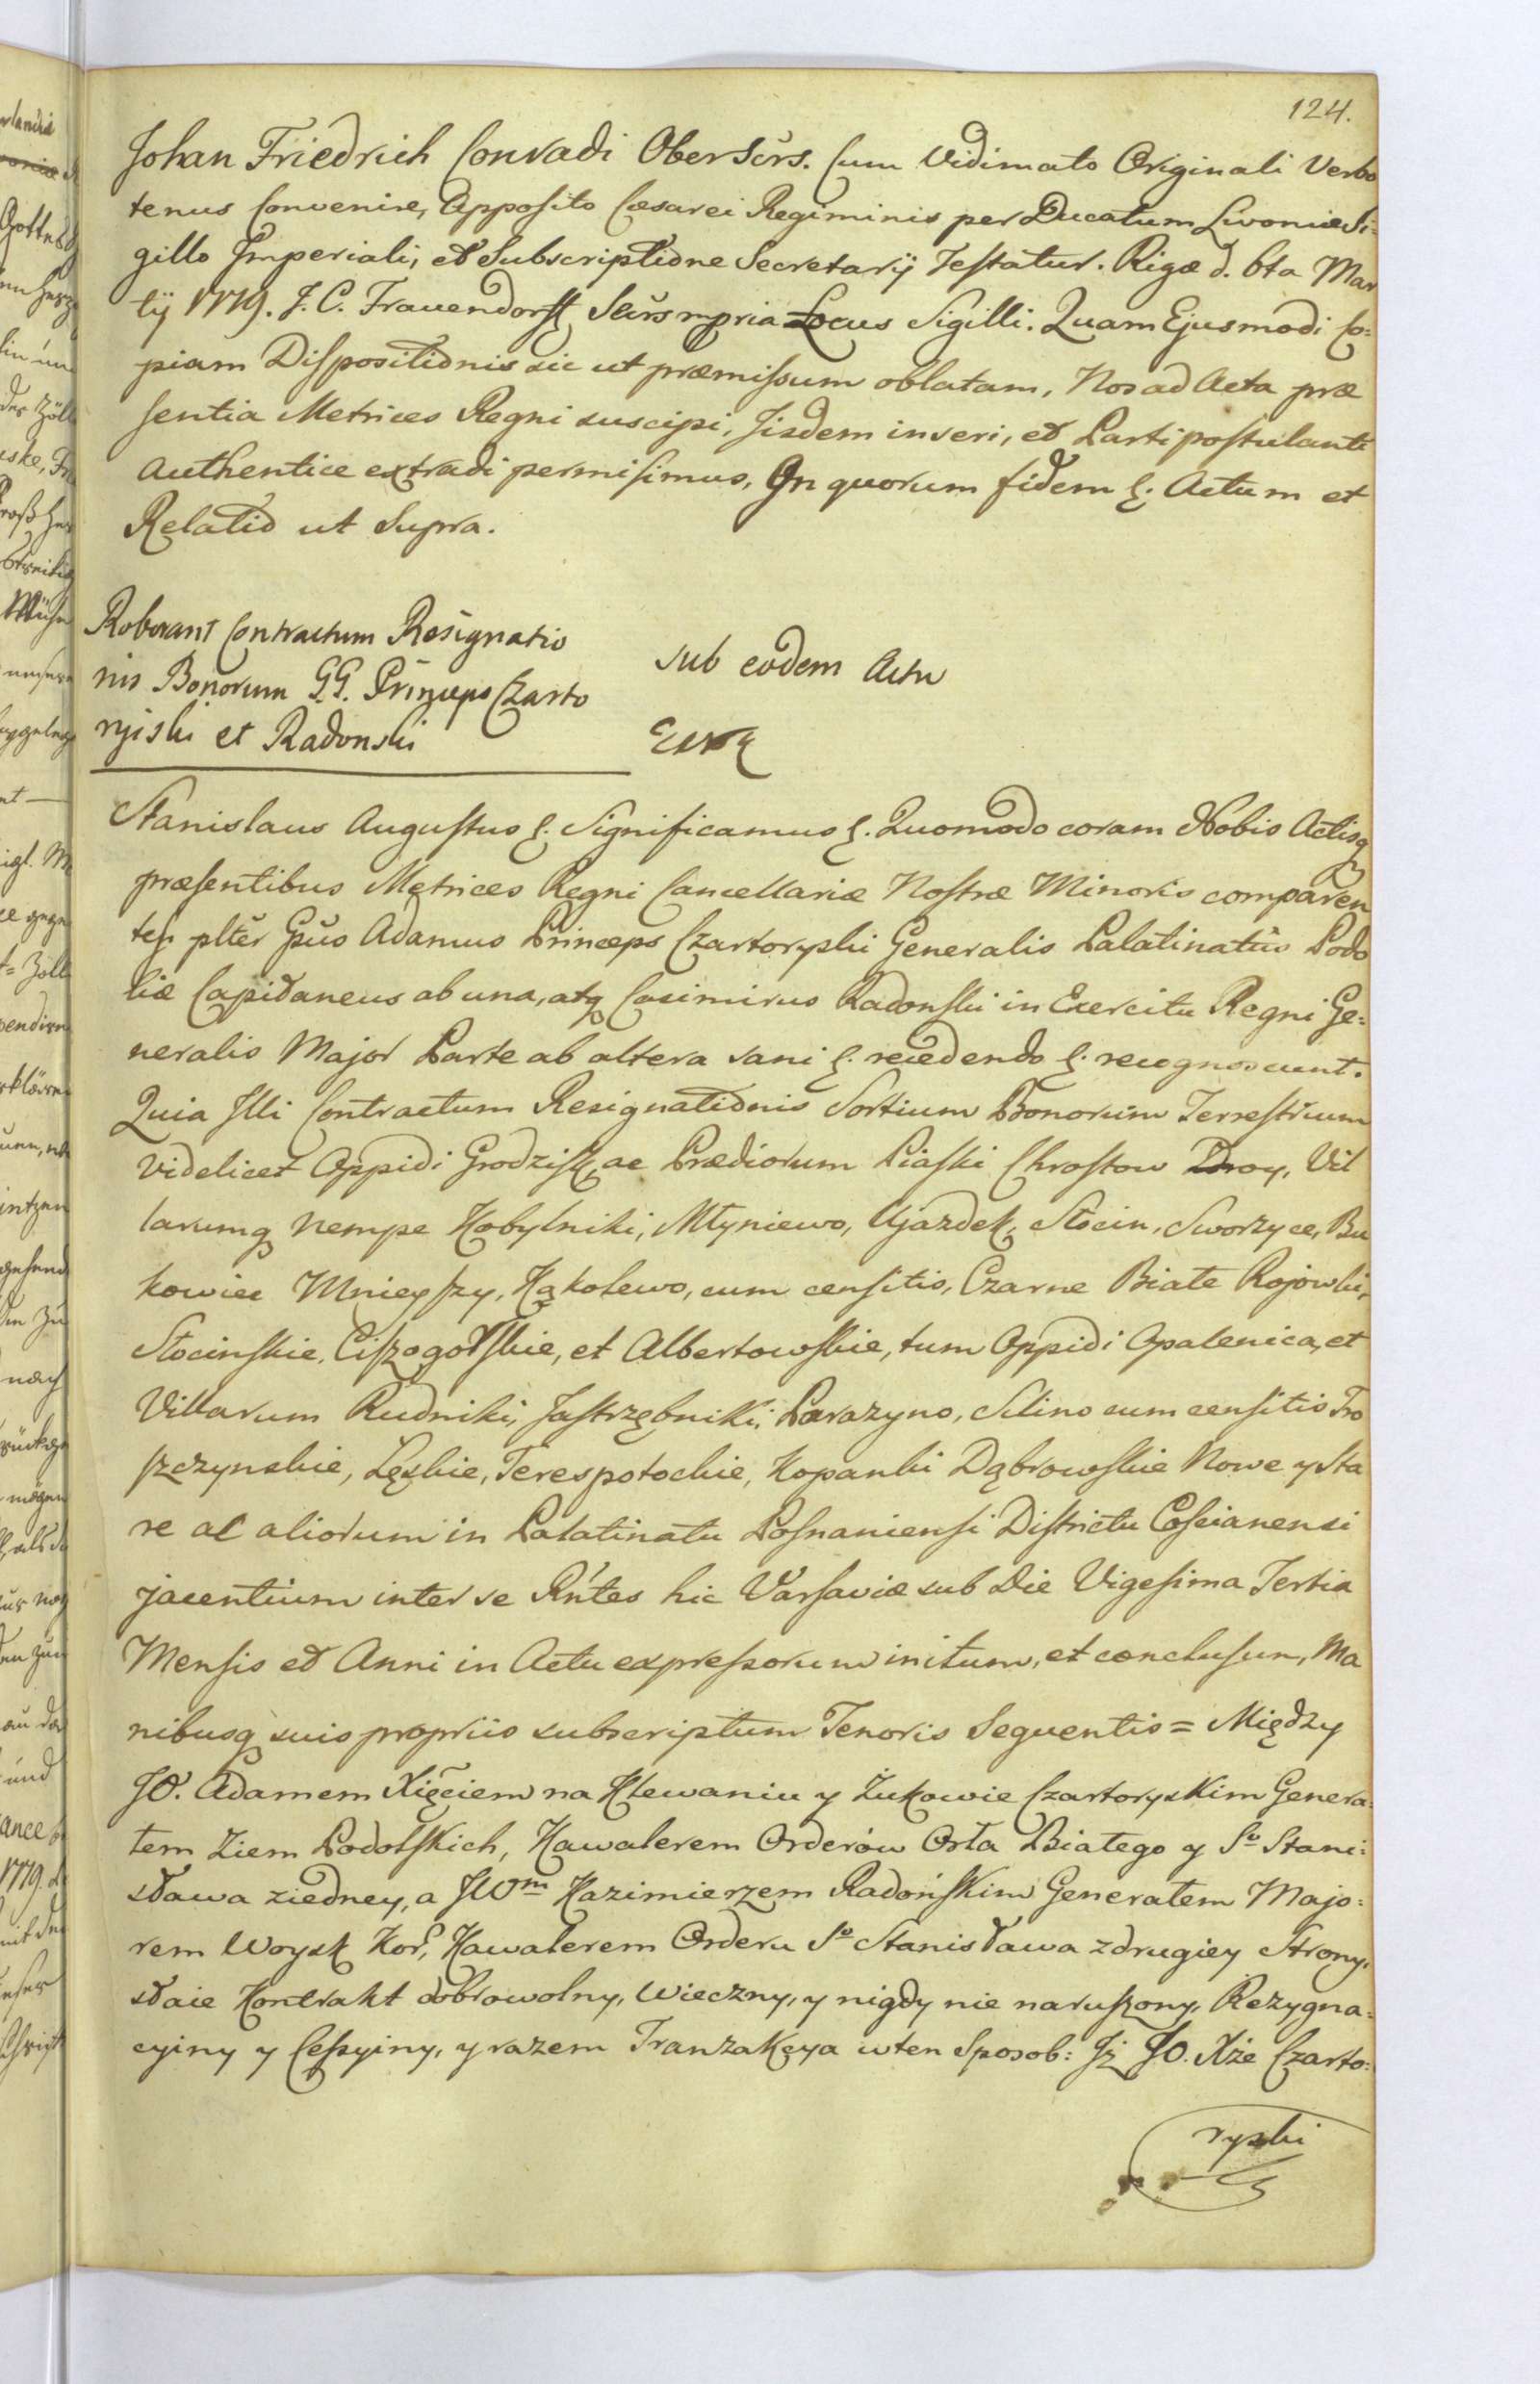 124.
Johan Friedrich Conradi Obersčrs. Cum Vidimato Originali Verbo
tenus Convenire, Apposito Cæsarei Regiminis per Ducatum Livoniæ Si-
gillo Imperiali, et Subscriptione Secretarij Testatur. Rigæ d. 6ta Mar
tij 1779. J. C. Frauendorff Sečrs mpria Locus Sigilli. Quam Ejusmodi Co-
piam Dispositionis sic ut præmissum oblatam, Nos ad Acta præ
sentia Metrices Regni suscipi, Iisdem inseri, et Parti postulanti
Authentice extradi permisimus, In quorum fidem &. Actum et
Relatio ut Supra.
Roborant Contractum Resignatio
nis Bonorum G.G. Princeps Czarto
ryiski et Radonski
sub eodem Actu
Stanislaus Augustus &. Significamus &. Quomodo coram Nobis Actisq
præsentibus Metrices Regni Cancellariæ Nostræ Minoris comparen
tes pltěr Gňus Adamus Princeps Czartoryski Generalis Palatinatus Podo
liæ Capitaneus ab una, atq Casimirus Radonski in Exercitu Regni Ge-
neralis Major Parte ab altera sani &. recedendo &. recognoscunt.
Quia Illi Contractum Resignationis Sortium Bonorum Terrestrium
videlicet Oppidi Grodzisk, ac Prædiorum Piaski Chrostow Zdroy, Vil
larumq nempe Kobylniki, Młyniewo, Ujazdek, Słocin, Sworzyce, Bu
kowiec Mnieyszy, Kąkolewo, cum censitis, Czarne Białe Rojowki,
Słocinskie, Ciszogorskie, et Albertowskie, tum Oppidi Opalenica, et
Villarum Rudniki, Jastrzębniki, Porazyno, Silino cum censitis Tro
szczynskie, Lęskie, Terespotockie, Kopanki Dąbrowskie Nowe y Sta
re ac aliorum in Palatinatu Posnaniensi Districtu Coscianensi
jacentium inter se Rńtes hic Varsaviæ sub Die Vigesima Tertia
Mensis et Anni in Actu expressorum initum, et conclusum, Ma
nibusq suis propriis subscriptum Tenoris Sequentis = Między
JO. Adamem Xięciem na Klewaniu y Żukowie Czartoryskim Genera-
łem Ziem Podolskich, Kawalerem Orderów Orła Białego y So Stani-
sława ziedney, a JWm Kazimierzem Radońskim Generałem Majo-
rem Woysk Kor, Kawalerem Orderu So Stanisława zdrugiey Strony,
staie Kontrakt dobrowolny, Wieczny, y nigdy nie naruszony, Rezygna-
cyiny y Cessyiny, y razem Tranzakcya wten Sposob: Jż JO. Xże Czarto-
ryski